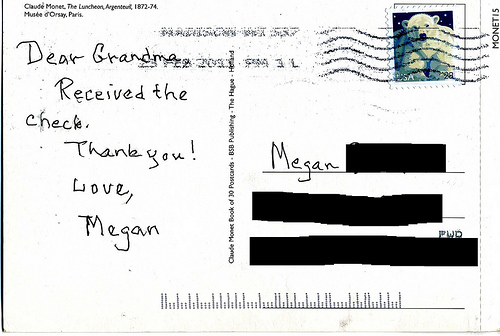 Claude Monet, The Luncheon, Argenteuil, 1872-74.
Musée d'Orsay, Paris.
MONET15
Dear Grandma,
Received the
check.
Thank you!
Love,
Megan
Claude Monet Book of 30 Postcards - BSB Publishing - The Hague - Holland
USA 28
PM 1 L
Megan
FWD